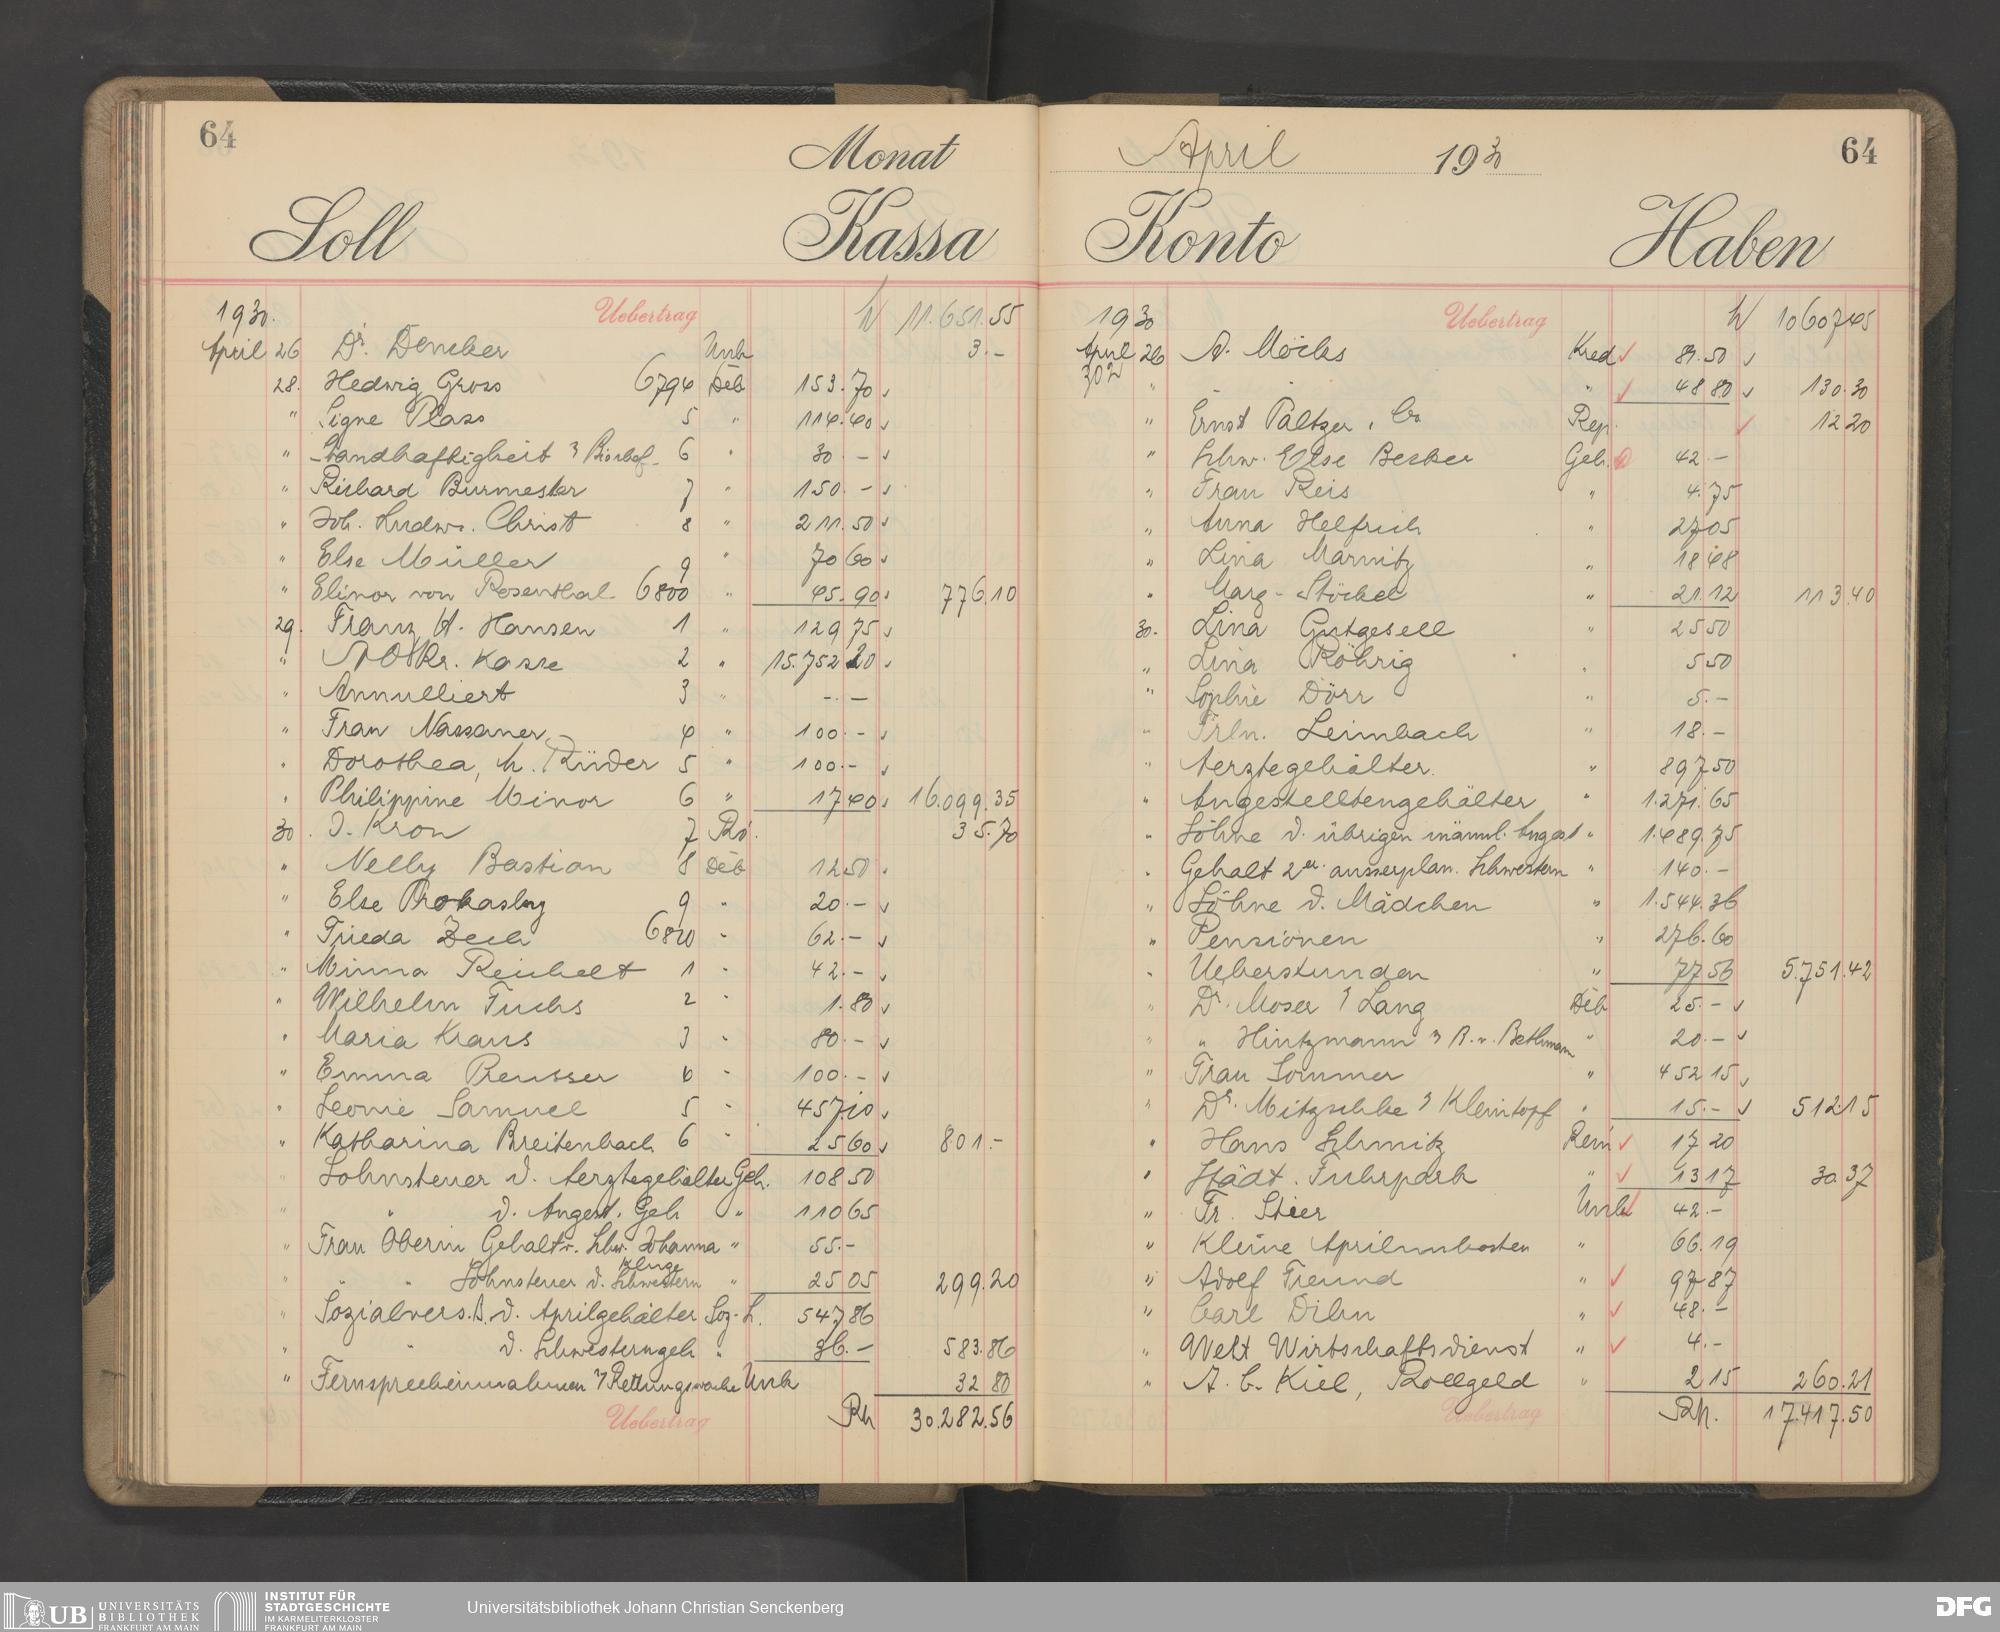 64
Monat
Soll Kassa
1930. Uebertrag 11.651.55
April 26 Dr. Dencker Unk 3.-
28. Hedwig Gross 6794 Deb 153.70
" Signe Plass 5 " 114.40
" Standhaftigkeit 6 " 30.-
" Richard Burmester 7 " 150.-
" Joh. Ludw. Christ 8 " 211.50
" Else Müller 9 " 70 60
" Elinor von Rosenthal 6800 " 45.90 776.10
29. Franz H. Hansen 1 " 129 75
" A.O.Kr. Kasse 2 " 15.752 20
" Annulliert 3 " -.-
" Frau Nassauer 4 " 100.-
" Dorothea, h. Rüder 5 " 100.-
" Philippine Minor 6 " 17 40 16.099.35
30. J. Kron 7 Rö. 35.70
" Nelly Bastian 8 Deb 12 50
" Else 9 " 20.-
" Frieda Zech 6810 " 62.-
" Minna Reichelt 1 " 42.-
" Wilhelm Fuchs 2 " 1.80
" Maria Kraus 3 " 80.-
" Emma Preusser 4 " 100.-
" Leonie Samuel 5 " 457.10
" Katharina Breitenbach 6 " 25 60 801.-
" Lohnsteuer d. Aerztegehälter Geh. 108 50
" " d. Angest. Geh " 110 65
" Frau Oberin Gehalt v. Schw. Johanna " 55.-
Kluge
" " " Lohnsteuer d. Schwestern " 25 05 299.20
" Sozialvers. B. d. Aprilgehälter Soz. L. 547.86
" " d. Schwesterngeh " 36.- 583.86
" Fernsprecheinnahmen Rettungswache Unk 32 80
Uebertrag Rh 30.282.56
April 1930
64
Konto Haben
1930 Uebertrag 10607.45
April 26 A. Möcks Kred 81.50
302 " " " 48 80 130.30
" Ernst Paltzer, Co Rep. 12 20
" Schw. Else Becker Geh. 42.-
" Frau Reis " 4.75
" Anna Helfrich " 27 05
" Lina Marnitz " 18 48
" Marg. Stöckel " 21.12 113.40
30. Lina Gutgesell " 25 50
" Lina Röhrig " 5 50
" Sophie Dörr " 5.-
" Frln. Leimbach " 18.-
" Aerztegehälter. " 897 50
" Angestelltengehälter " 1.271.65
" Löhne d. übrigen männl. Angest " 1.489.75
" Gehalt 2er ausserplan. Schwestern " 140.-
" Löhne d. Mädchen " 1.544.36
" Pensionen " 276.60
" Ueberstunden " 77 56 5.751.42
" Dr. Moser Lang Deb 25.-
" " Hintzmann B. v. Bethmann " 20.-
" Frau Sommer " 452 15
" Dr. Mitzschke Kleintopf " 15.- 512.15
" Hans Schmitz Rein 17 20
" Städt. Fuhrpark " 13 17 30.37
" Fr. Stier Unk 42.-
" Kleine Aprilunkosten " 66.19
" Adolf Freund " 97 87
" Carl Dihn " 48.-
" Welt Wirtschaftsdienst " 4.-
" A. C. Kiel, Rollgeld " 2 15 260.21
Uebertrag Rh. 17.417.50
UB UNIVERSITÄTS
BIBLIOTHEK
FRANKFURT AM MAIN
INSTITUT FÜR
STADTGESCHICHTE
IM KARMELITERKLOSTER
FRANKFURT AM MAIN
Universitätsbibliothek Johann Christian Senckenberg
DFG